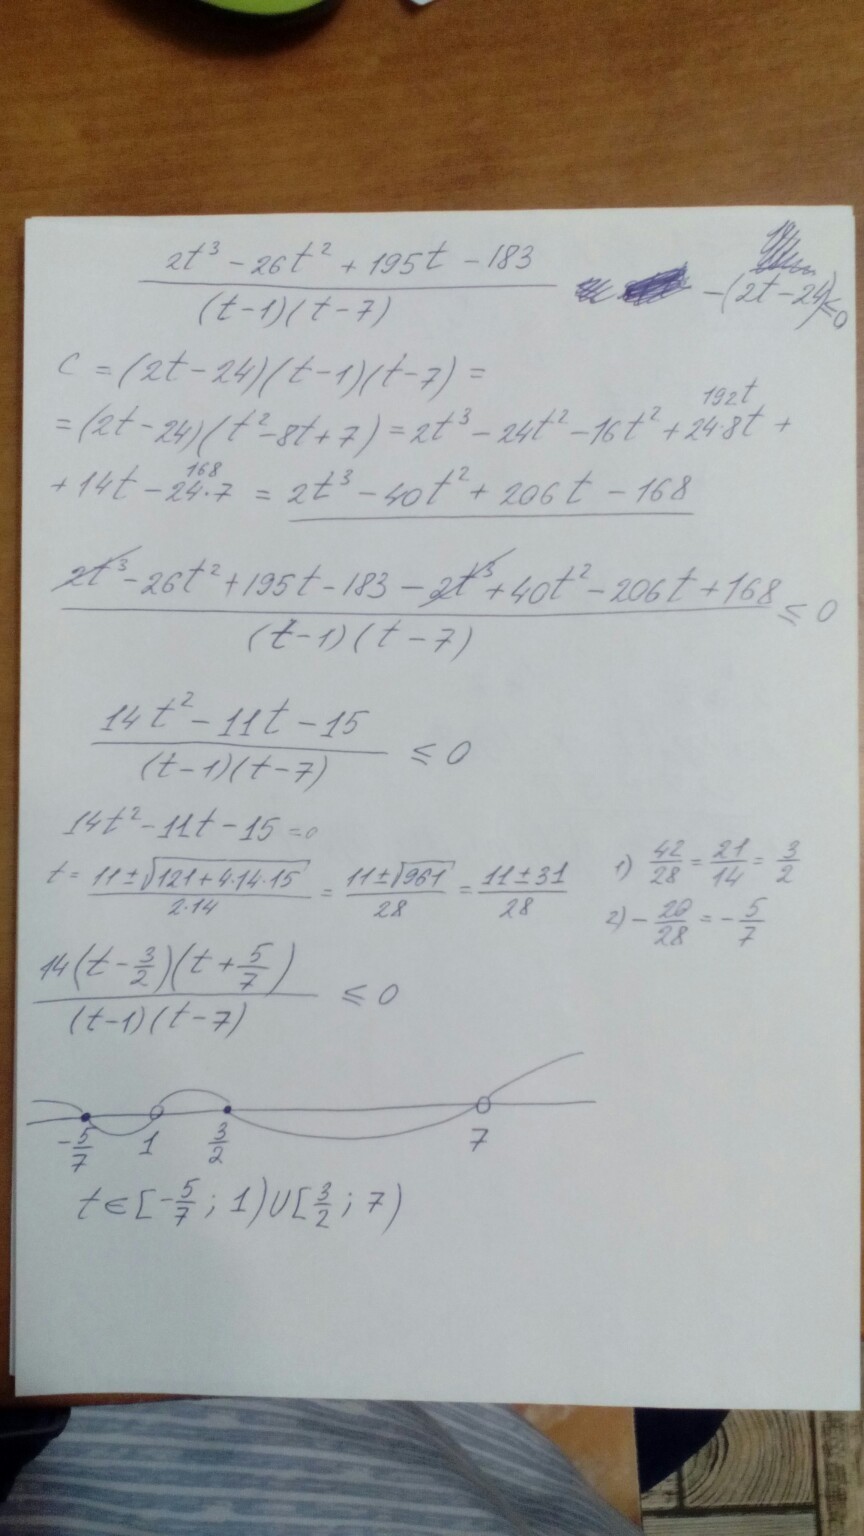 (2t³ - 26t² + 195t - 183) / ((t-1)(t-7)) - (2t - 24) ≤ 0
C = (2t - 24)(t - 1)(t - 7) =
= (2t - 24)(t² - 8t + 7) = 2t³ - 24t² - 16t² + 24·8t +
192t
+ 14t - 24·7 = 2t³ - 40t² + 206t - 168
168
(2t³ - 26t² + 195t - 183 - 2t³ + 40t² - 206t + 168) / ((t-1)(t-7)) ≤ 0
(14t² - 11t - 15) / ((t-1)(t-7)) ≤ 0
14t² - 11t - 15 = 0
t = (11 ± √(121 + 4·14·15)) / (2·14) = (11 ± √961) / 28 = (11 ± 31) / 28
1) 42/28 = 21/14 = 3/2
2) - 20/28 = - 5/7
14(t - 3/2)(t + 5/7) / ((t-1)(t-7)) ≤ 0
-5/7 1 3/2 7
t ∈ [-5/7; 1) ∪ [3/2; 7)